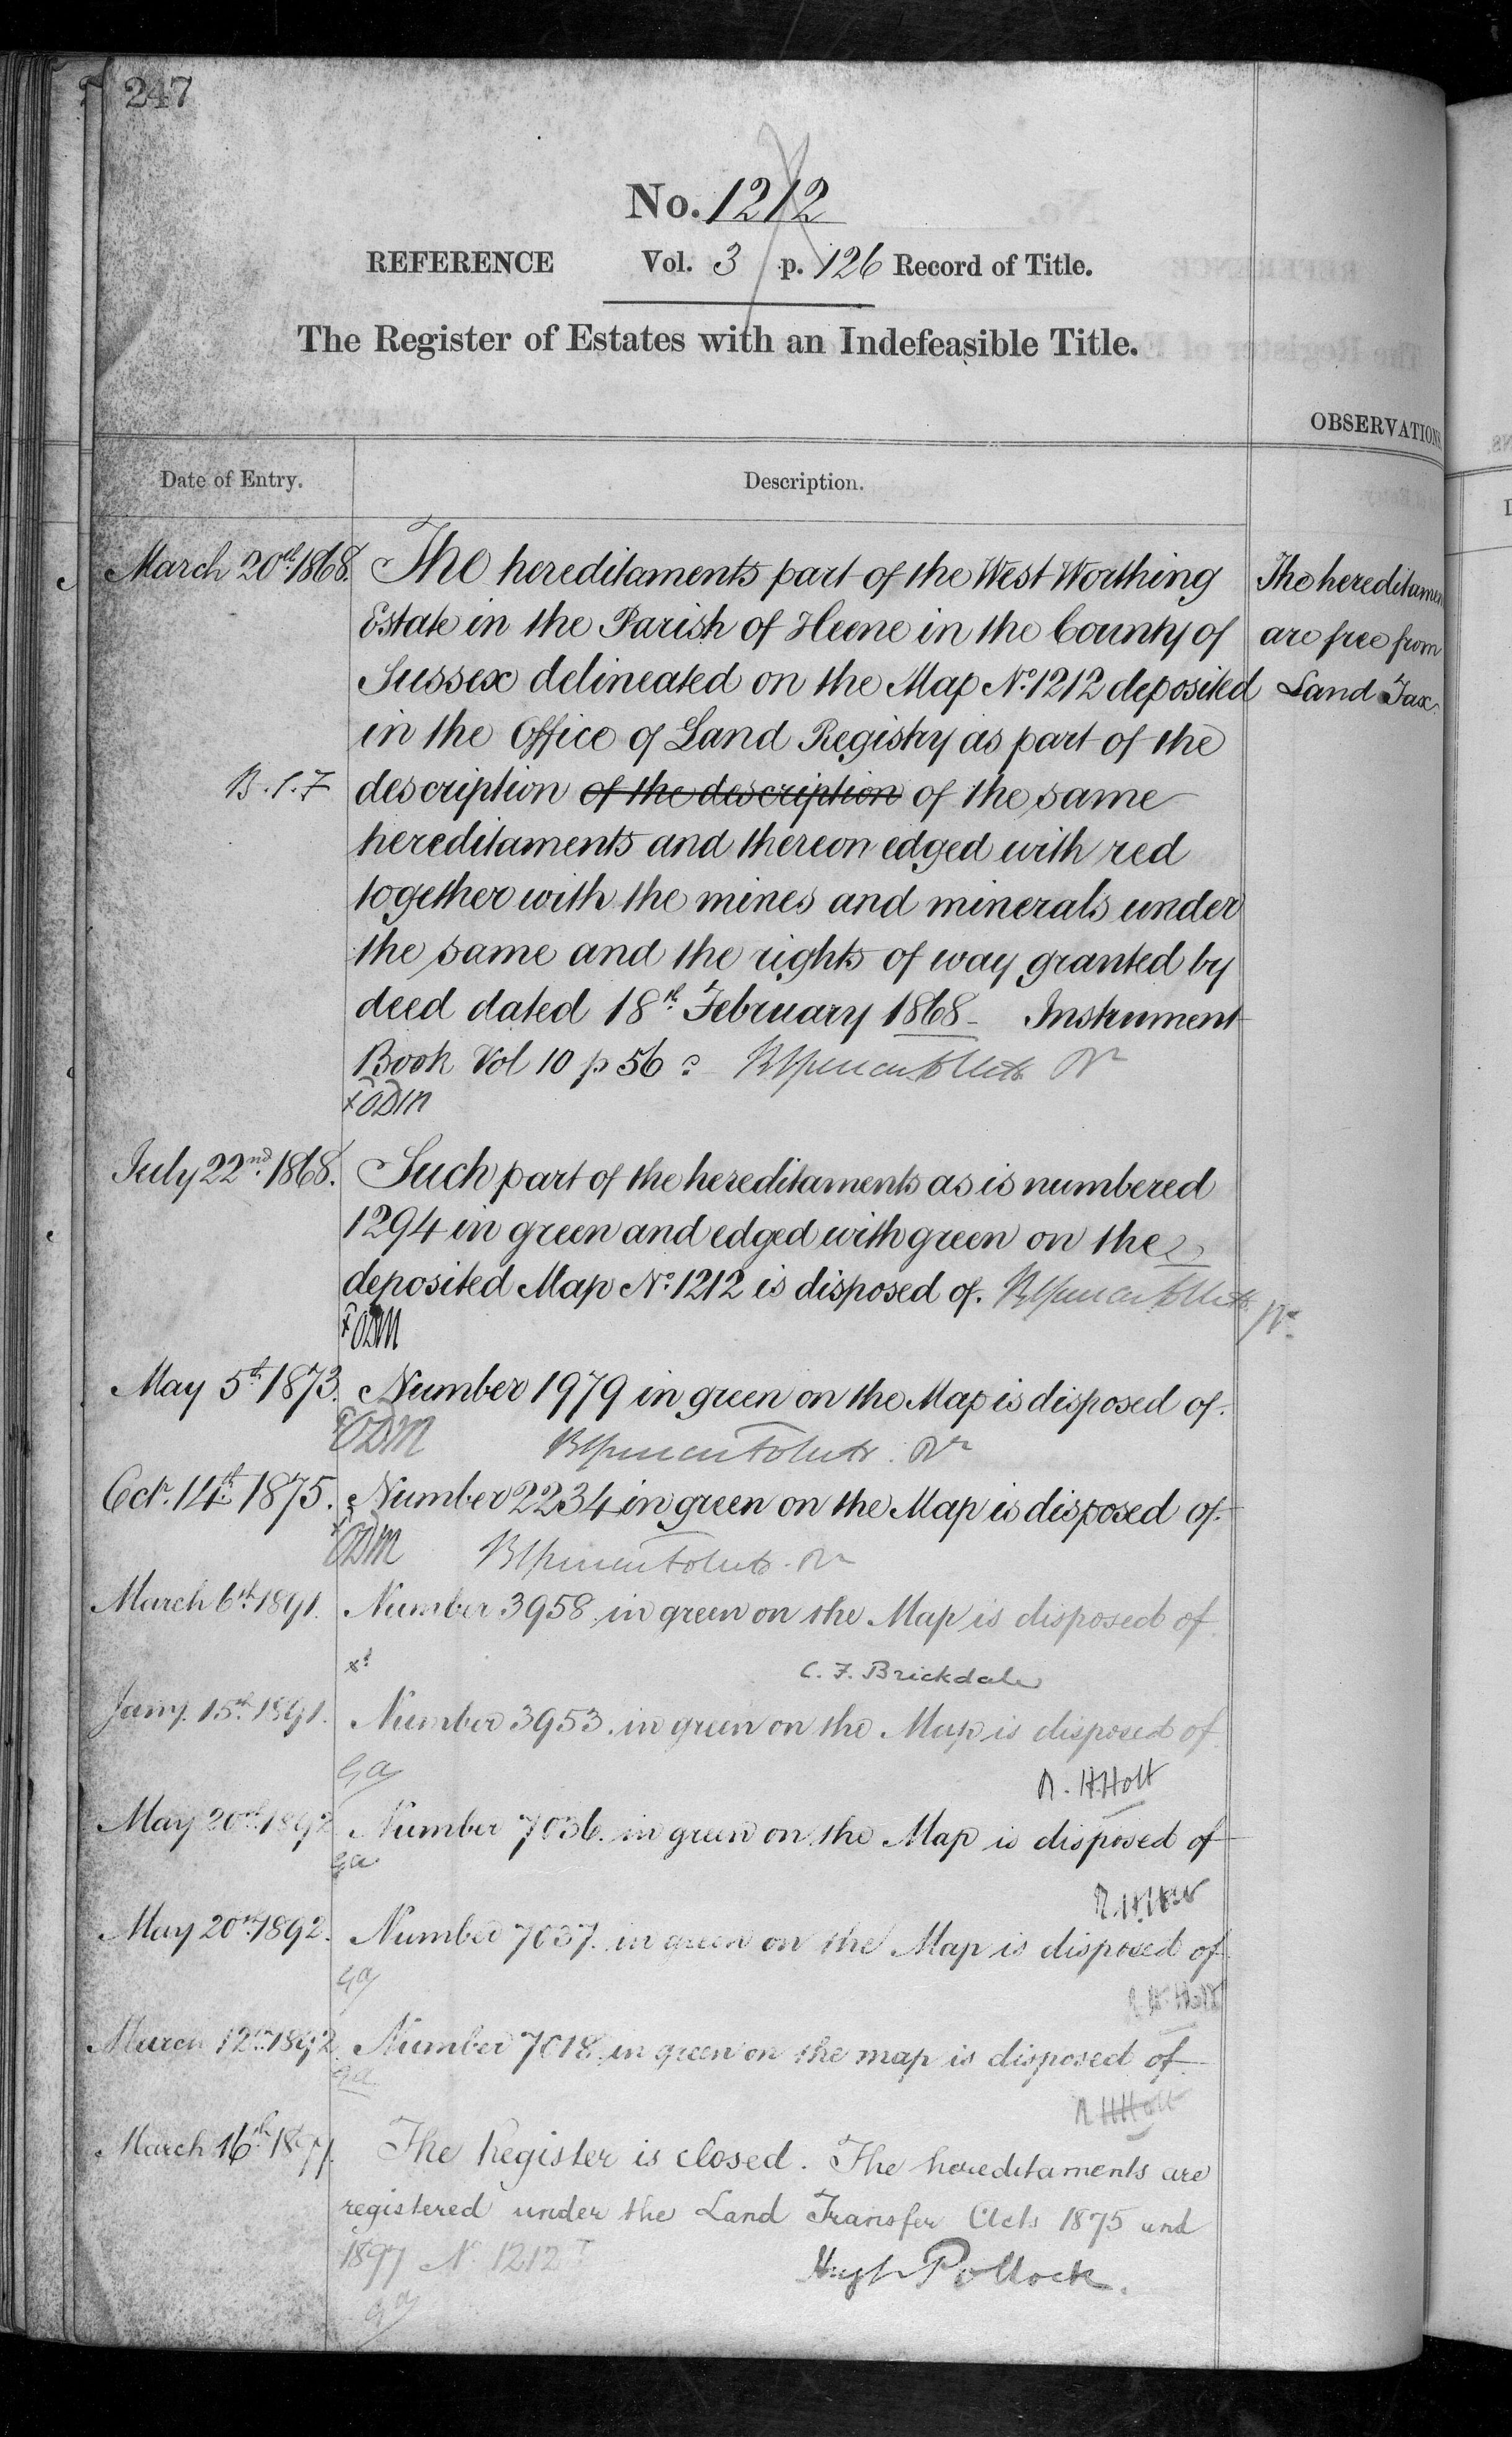 247
No. 1212
REFERENCE Vol. 3 p. 126 Record of Title.
The Register of Estates with an Indefeasible Title.
OBSERVATIONS
Date of Entry. Description.
March 20th 1868. The hereditaments part of the West Worthing
Estate in the Parish of Heene in the County of
Sussex delineated on the Map No. 1212 deposited
in the Office of Land Registry as part of the
B.S.F description of the description of the same
hereditaments and thereon edged with red
together with the mines and minerals under
the same and the rights of way granted by
deed dated 18th February 1868 - Instrument
Book Vol 10 p 56
The hereditamen
are free from
Land Tax.
x ODM
July 22nd 1868. Such part of the hereditaments as is numbered
1294 in green and edged with green on the
deposited Map No. 1212 is disposed of.
x ODM
May 5th 1873. Number 1979 in green on the Map is disposed of.
x ODM
Oct. 14th 1875. Number 2234 in green on the Map is disposed of.
x ODM
March 6th 1891. Number 3958 in green on the Map is disposed of.
C. F. Brickdale
Jany. 15th 1891. Number 3953 in green on the Map is disposed of.
Ga R. H. Holt
May 20th 1892 Number 7036 in green on the Map is disposed of
Ga R. H. Holt
May 20th 1892. Number 7037 in green on the Map is disposed of.
Ga R. H. Holt
March 12th 1892 Number 7018 in green on the map is disposed of.
Ga R H Holt
March 16th 1899. The Register is closed. The hereditaments are
registered under the Land Transfer Acts 1875 and
1897 No. 1212 Hugh Pollock.
Ga